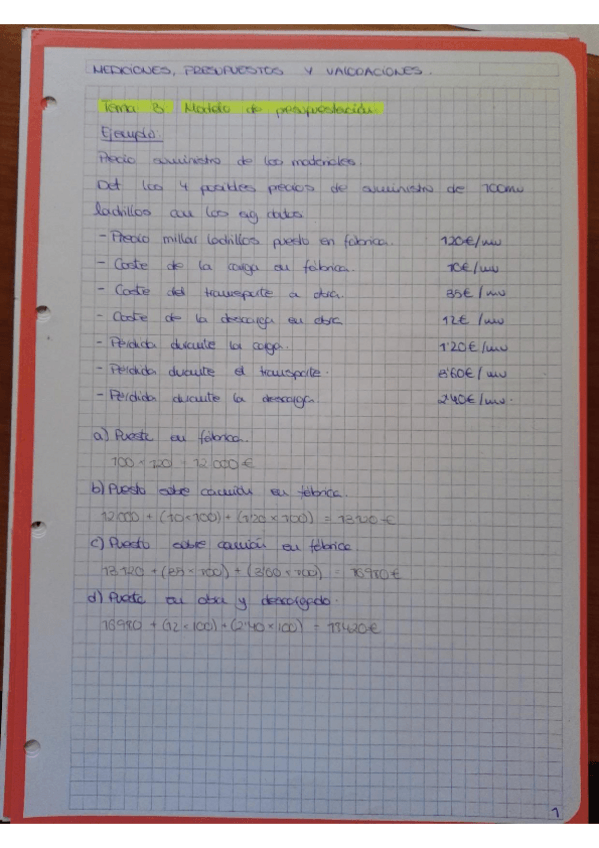 MEDICIONES, PRESUPUESTOS Y VALORACIONES.
Tema 3. Modelo de presupuestación.
Ejemplo:
Precio suministro de los materiales.
Det los 4 posibles precios de suministro de 100mu
ladrillos con los sig datos
- Precio millar ladrillos puesto en fábrica. 120€/mu
- Coste de la carga en fábrica. 10€/mu
- Coste del transporte a obra. 35€/mu
- Coste de la descarga en obra 12€/mu
- Pérdida durante la carga. 1'20€/mu
- Pérdida durante el transporte. 3'60€/mu
- Pérdida durante la descarga. 2'40€/mu.
a) Puesto en fábrica.
100 × 120 = 12000€
b) Puesto sobre camión en fábrica.
12000 + (10×100) + (1'20×100) = 13120€
c) Puesto sobre camión en fábrica
13120 + (35×100) + (3'60×100) = 16980€
d) Puesto en obra y descargado.
16980 + (12×100) + (2'40×100) = 18420€
1